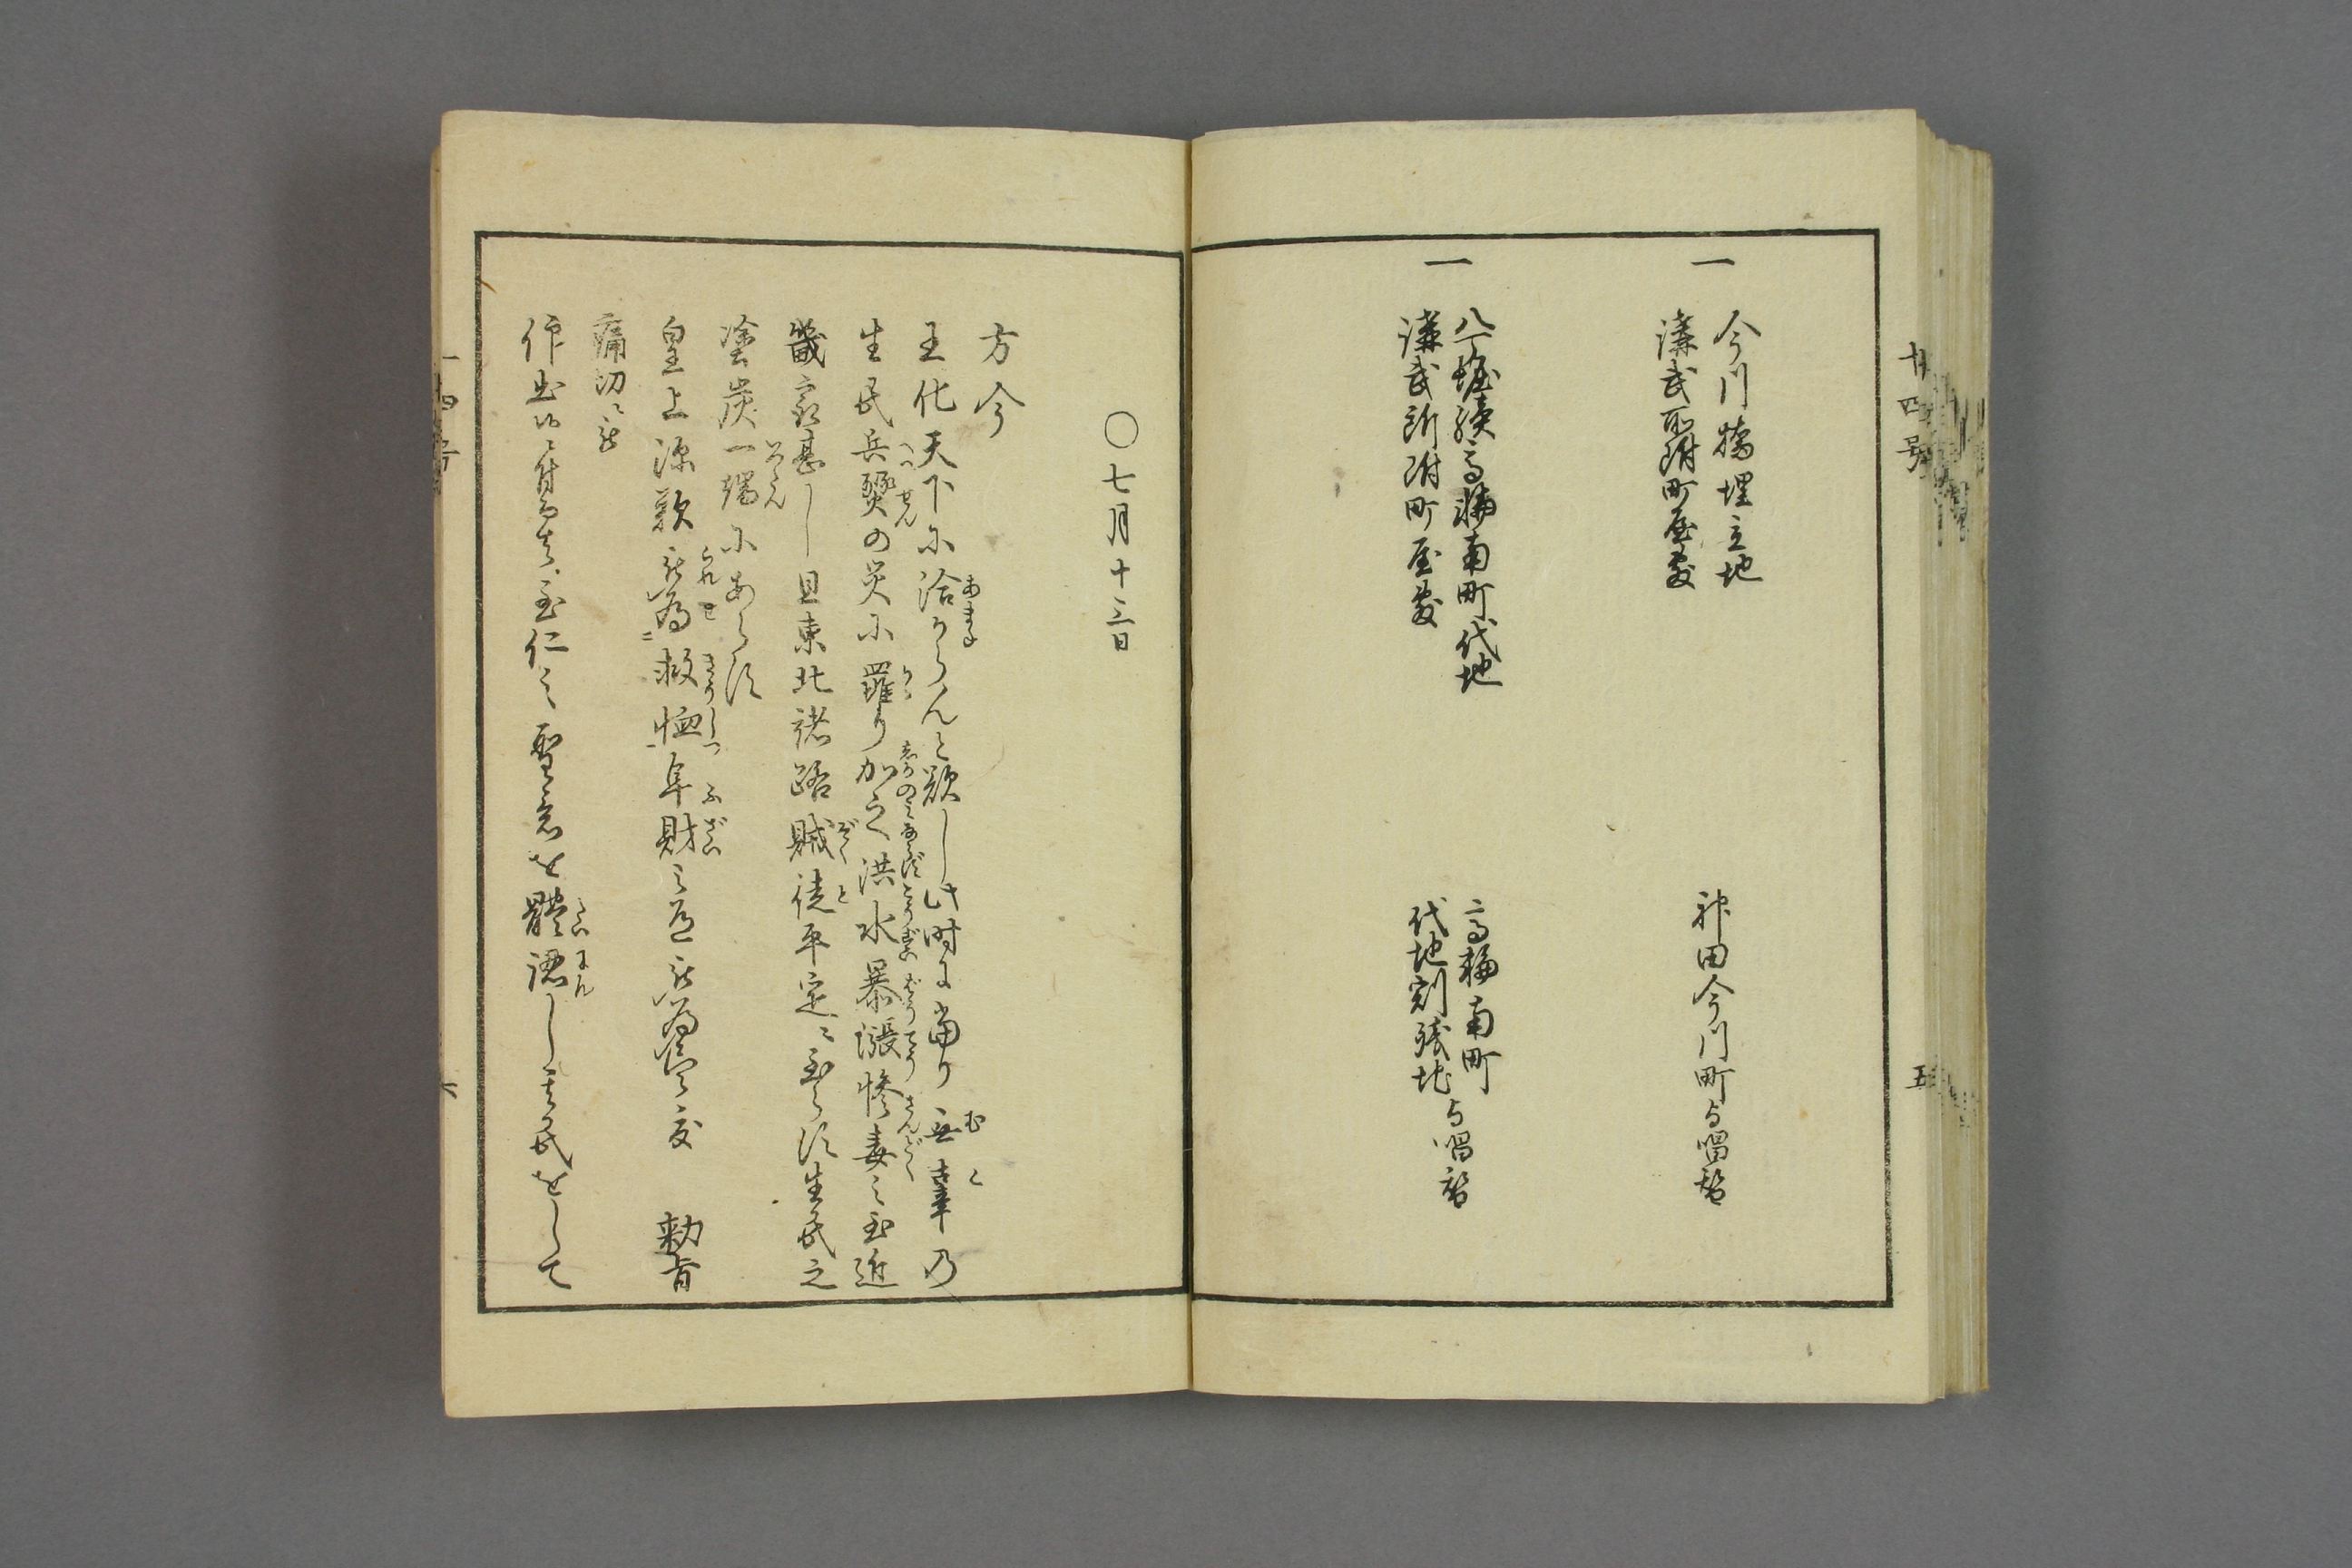 十四号
五
一 今川橋埋立地
講武所附町屋敷
神田今川町与唱替
一 八丁堀続高輪南町代地
講武所附町屋敷
高輪南町
代地割残地
与唱替
〇七月十三日
方今
王化天下に洽からんと欲し此時に当り無辜の
生民兵燹の災に羅り加之洪水暴漲惨毒之至近
畿最甚し且東北諸路賊徒平定ニ至らす生民之
塗炭一端にあらす
皇上深歎被為 救恤阜財之道被為尽度 勅旨
痛切ニ被
仰出候ニ付而者至仁之聖意を體認し其民をして
十四号
六